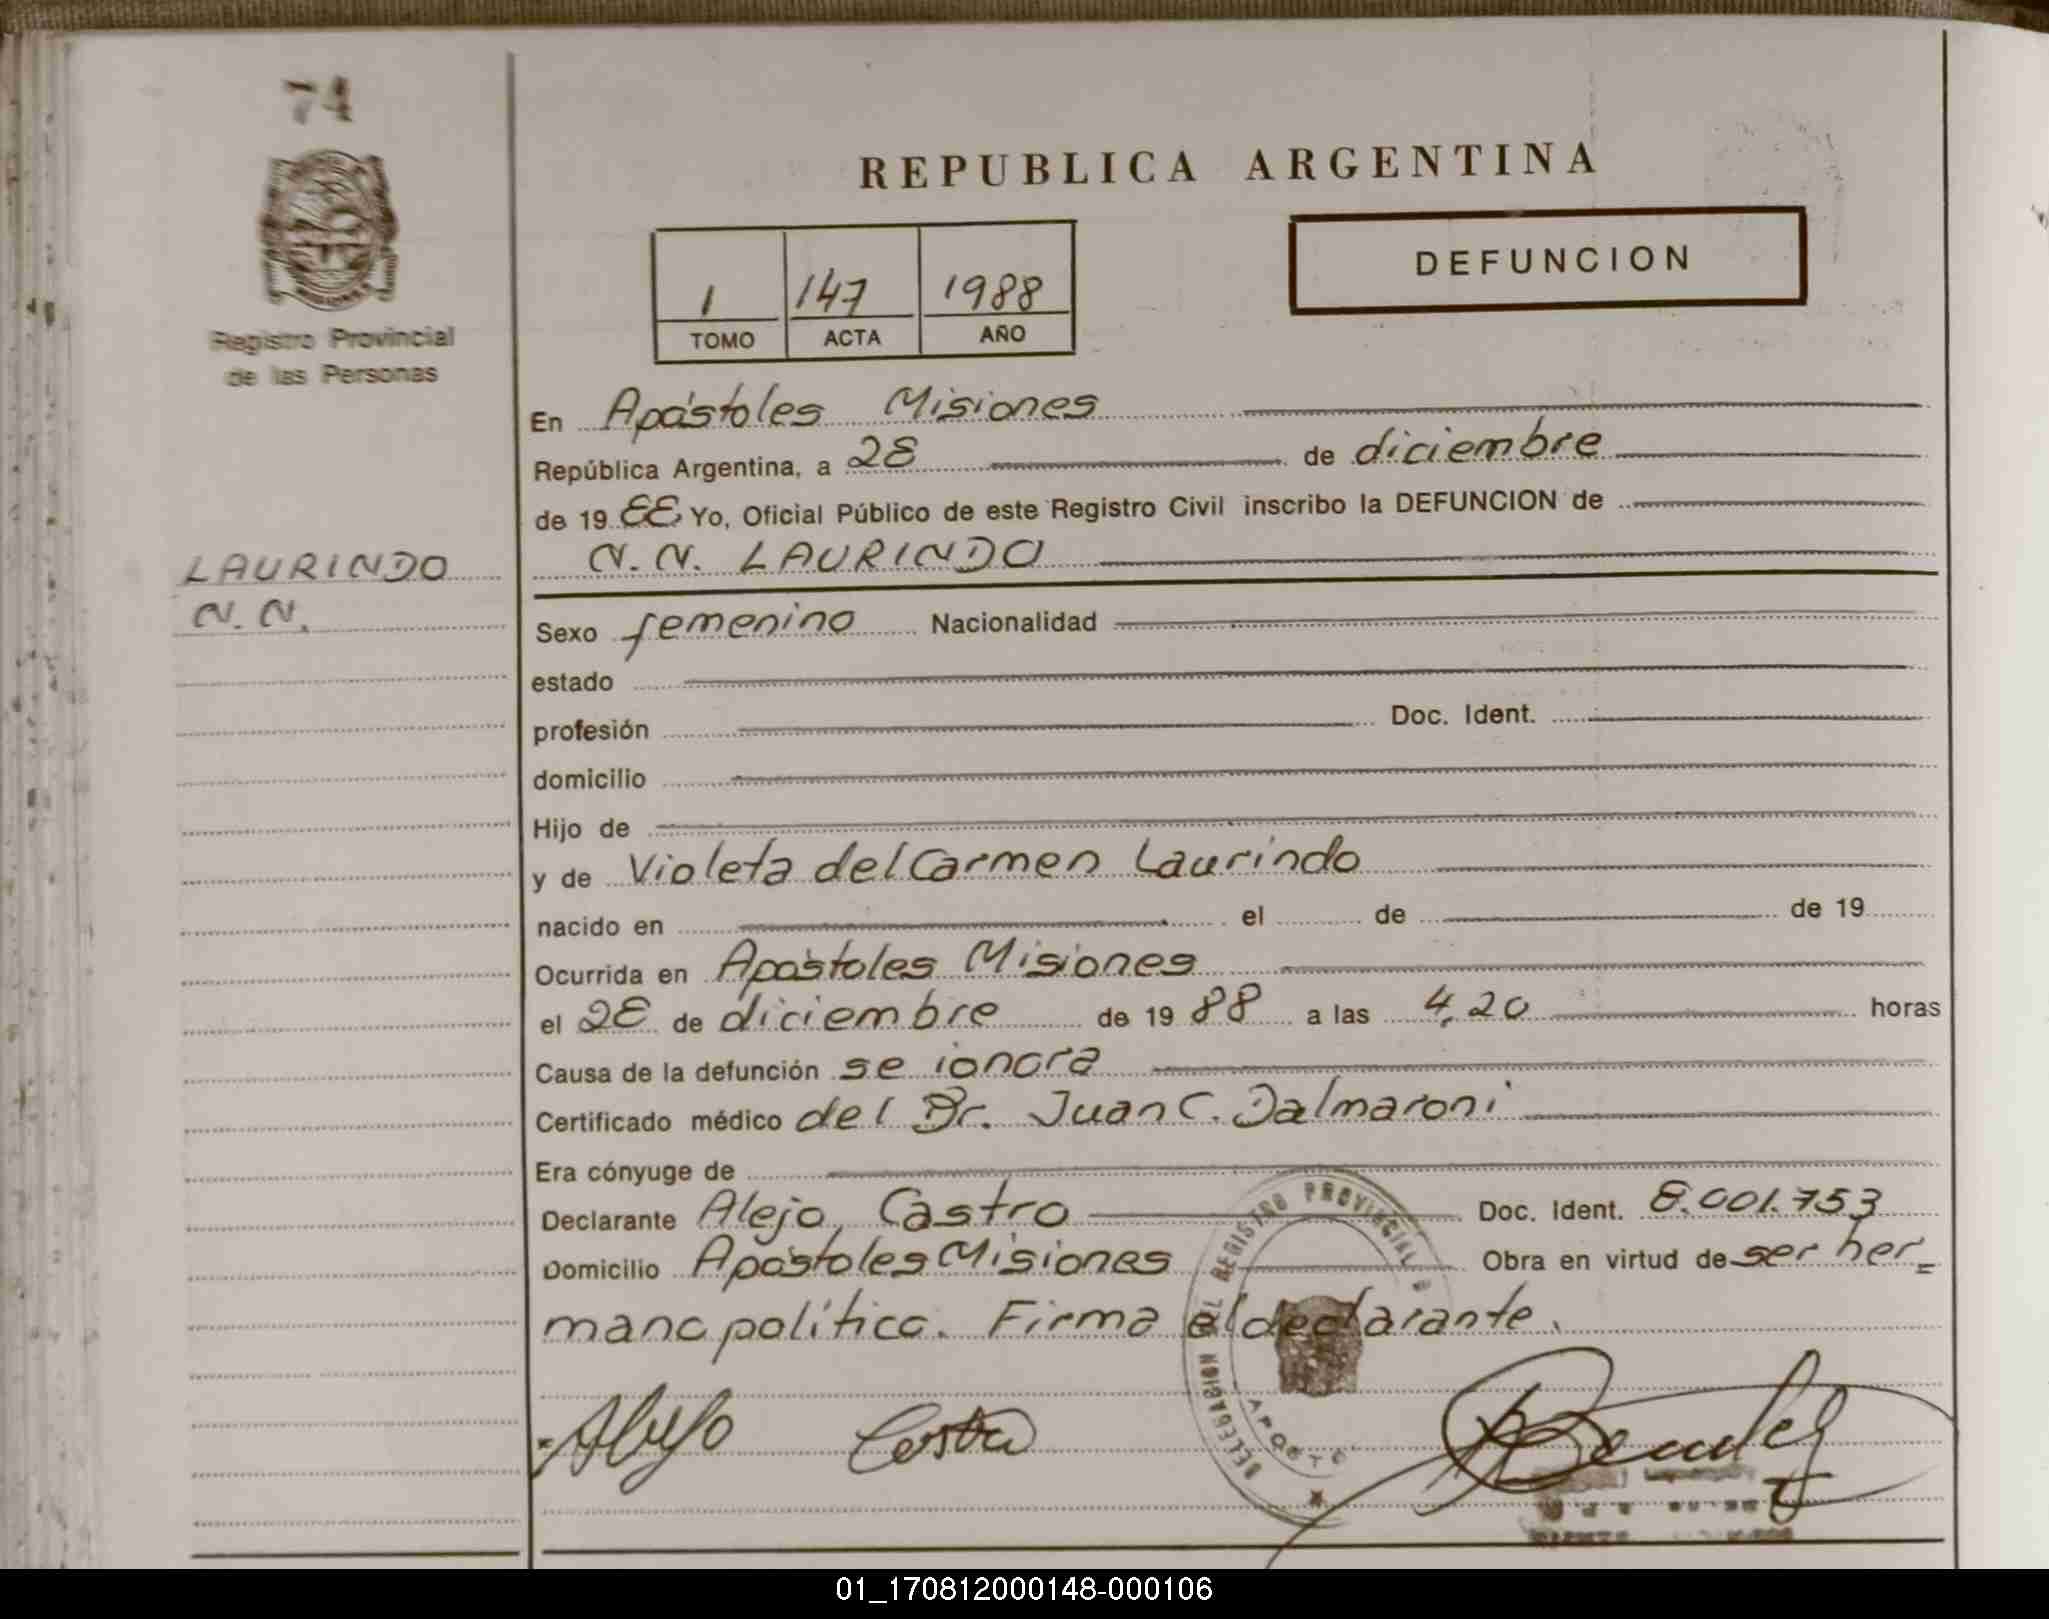 74
REPUBLICA ARGENTINA
DEFUNCION
1 147 1988
TOMO ACTA AÑO
Registro Provincial
de las Personas
En Apóstoles Misiones
República Argentina, a 28 de diciembre
de 19 88 Yo, Oficial Público de este Registro Civil inscribo la DEFUNCION de
N. N. LAURINDO
LAURINDO
N. N.
Sexo femenino Nacionalidad
estado
profesión Doc. Ident.
domicilio
Hijo de
y de Violeta del Carmen Laurindo
nacido en el de de 19
Ocurrida en Apóstoles Misiones
el 28 de diciembre de 19 88 a las 4,20 horas
Causa de la defunción se ignora
Certificado médico del Dr. Juan C. Dalmaroni
Era cónyuge de
Declarante Alejo Castro Doc. Ident. 8.001.753
Domicilio Apóstoles Misiones Obra en virtud de ser her=
mano político. Firma el declarante.
DELEGACION DEL REGISTRO PROVINCIAL D
APOSTO
Alejo Castro
01_170812000148-000106